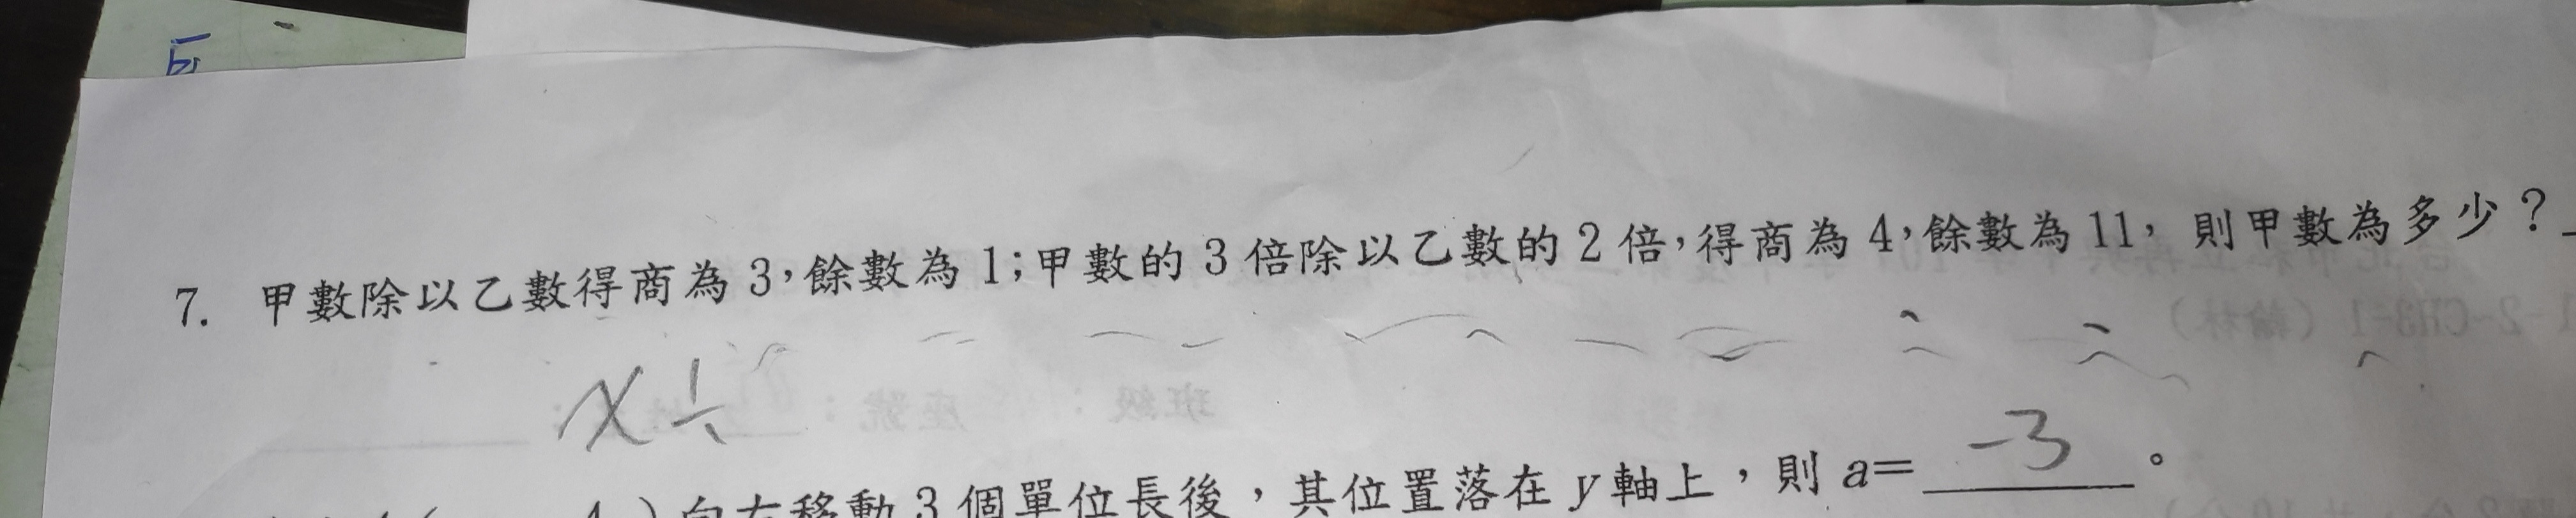 7. 甲數除以乙數得商為 3,餘數為 1;甲數的 3 倍除以乙數的 2 倍,得商為 4,餘數為 11, 則甲數為多少?
x÷
向右移動 3 個單位長後,其位置落在 y 軸上,則 a= -3 。